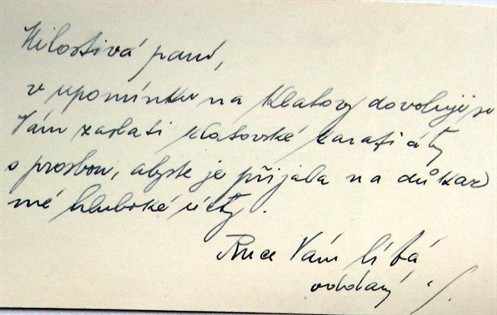 Milostivá paní,
v upomínku na Klatovy dovoluji si
Vám zaslati klatovské karafiáty
s prosbou, abyste je přijala na důkaz
mé hluboké úcty.
Ruce Vám líbá
oddaný